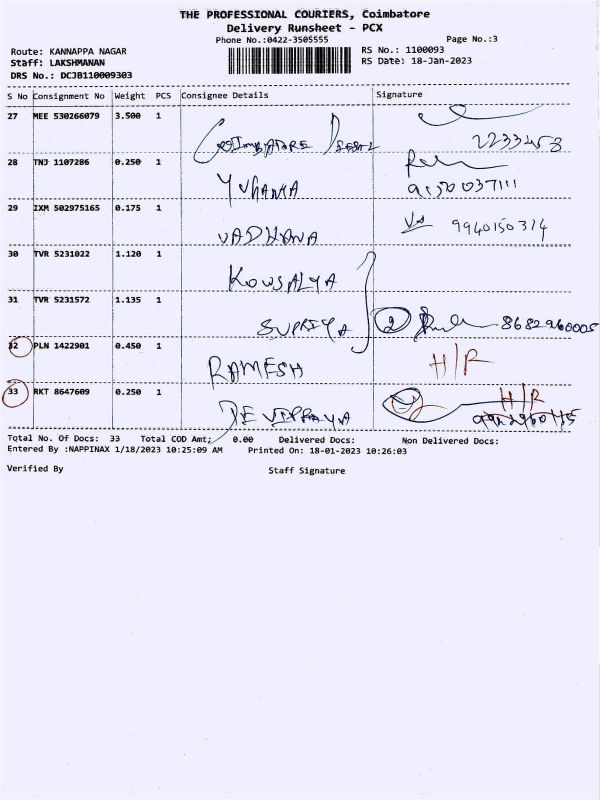 THE PROFESSIONAL COURIERS, Coimbatore
Delivery Runsheet - PCX
Phone No.:0422-3505555
Page No.:3
Route: KANNAPPA NAGAR
RS No.: 1100093
Staff: LAKSHMANAN
RS Date: 18-Jan-2023
DRS No.: DCJB110009303
S No Consignment No Weight PCS Consignee Details Signature
27 MEE 530266079 3.500 1
COIMBATORE 2233458
28 TNJ 1107286 0.250 1
YUVANYA
29 IXM 502975165 0.175 1
VADHANA 9940150374
30 TVR 5231022 1.120 1
KOWSALYA
31 TVR 5231572 1.135 1
SUPRIYA 2 8682960005
32 PLN 1422901 0.450 1
RAMESH H/R
33 RKT 8647609 0.250 1
DEVIPRAYA H/R
Total No. Of Docs: 33 Total COD Amt: 0.00 Delivered Docs: Non Delivered Docs:
Entered By :NAPPINAX 1/18/2023 10:25:09 AM Printed On: 18-01-2023 10:26:03
Verified By Staff Signature